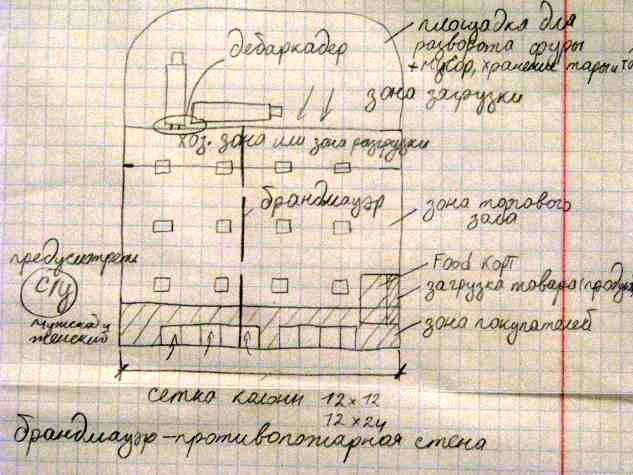 площадка для
разворота фуры
+ мусор, хранение тары и т
дебаркадер
зона загрузки
хоз. зона или зона разгрузки
брандмауэр
зона торгового
зала
предусмотреть
с/у
мужской и
женский
Food корт
загрузка товара (продук
зона покупателей
сетка колонн 12 x 12
12 x 24
брандмауэр - противопожарная стена